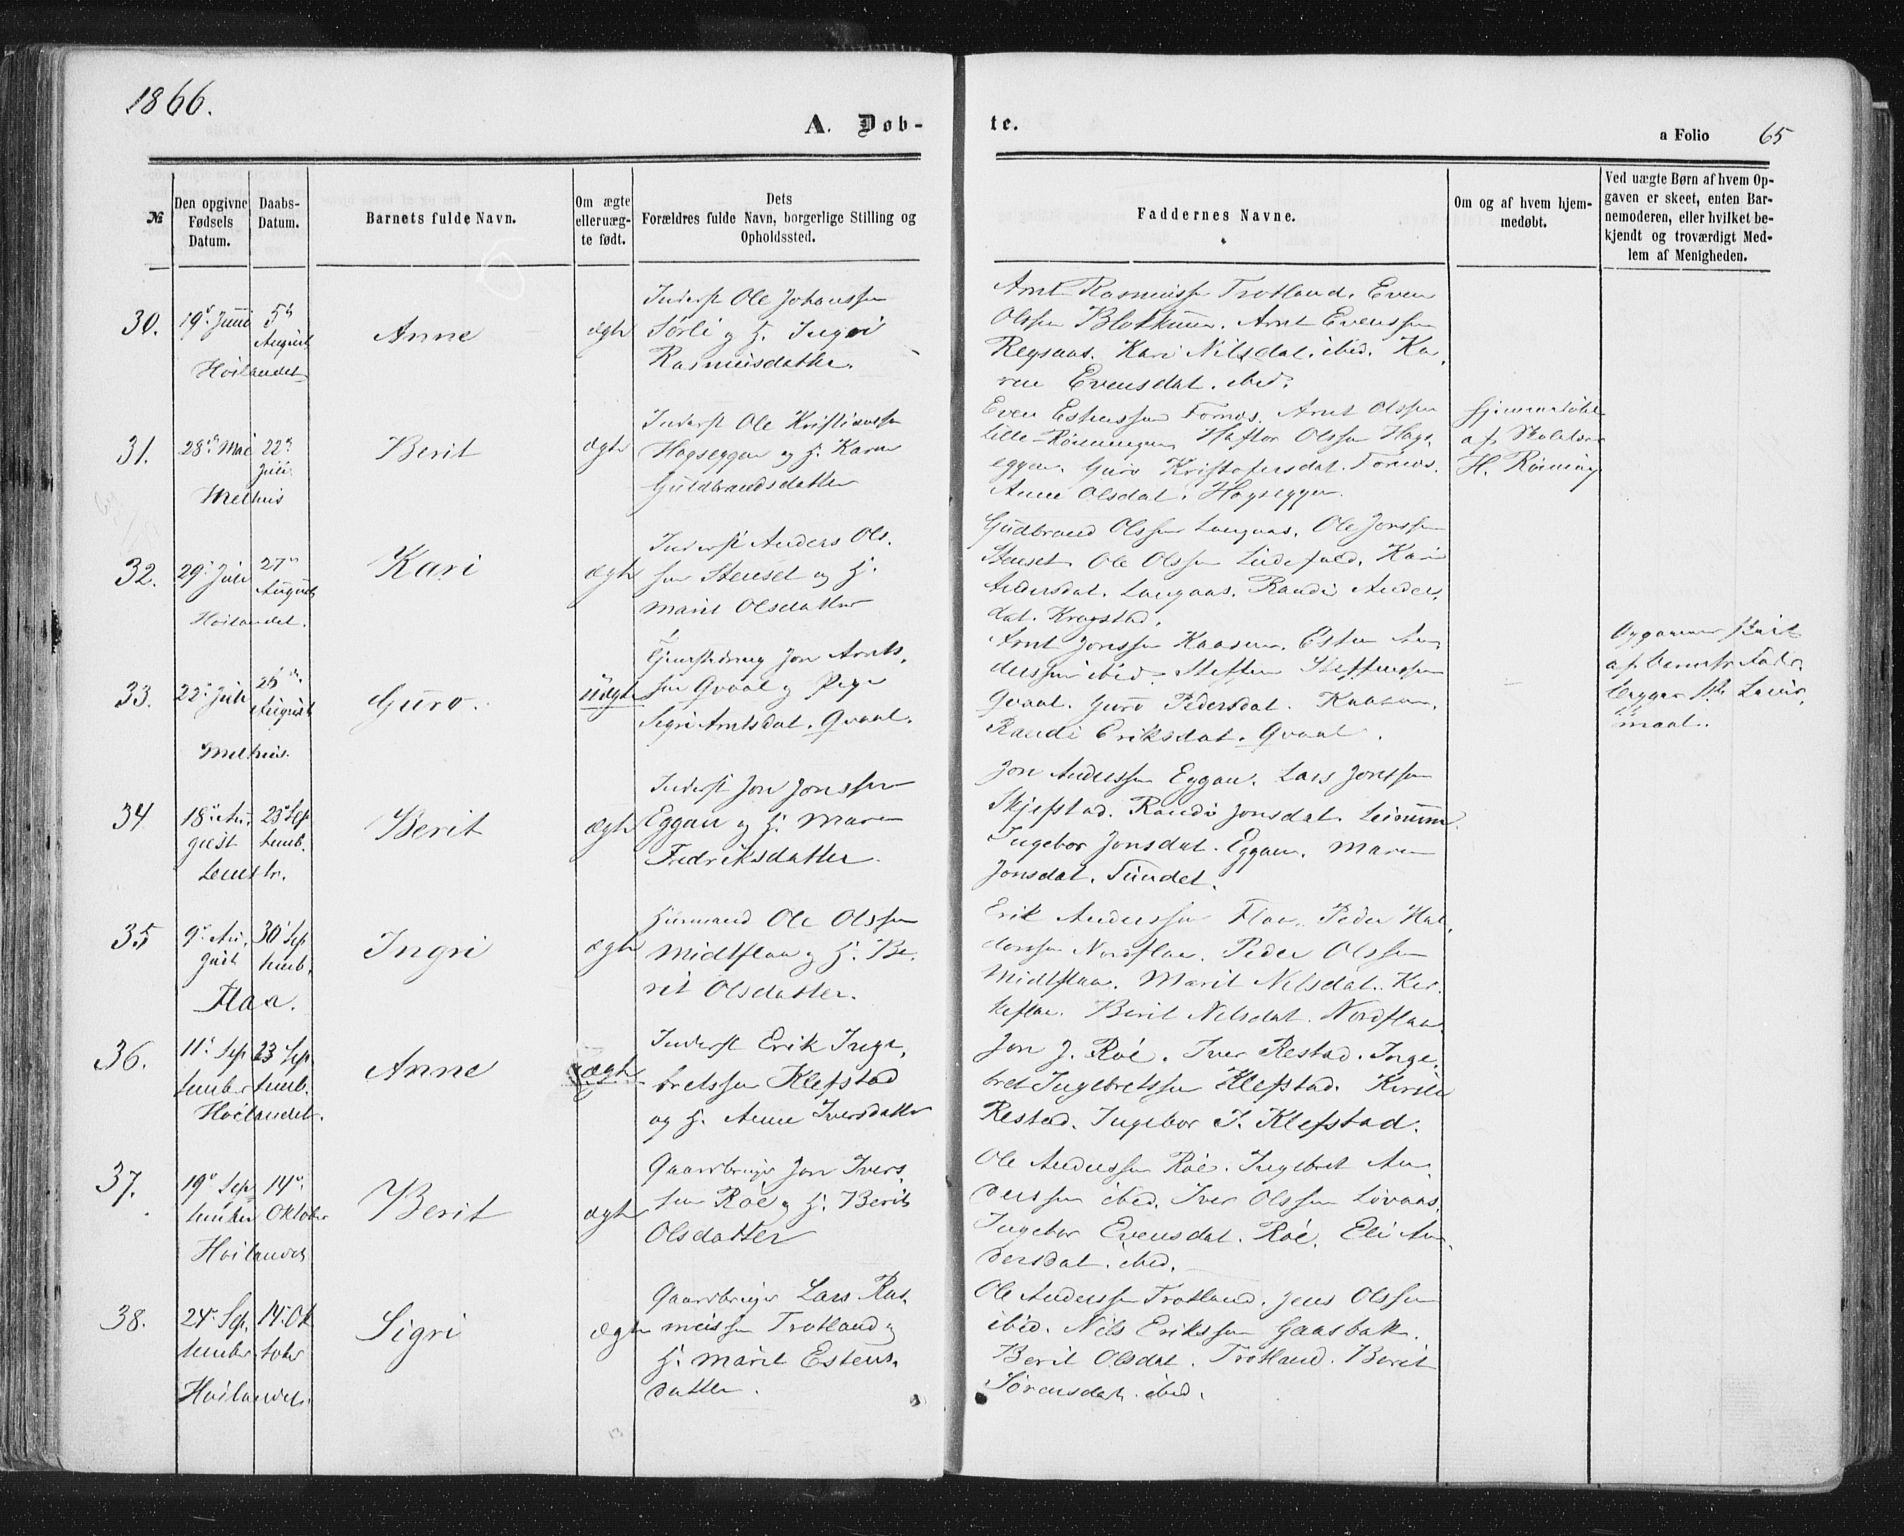 1866.
A. Döb-
te.
a Folio 65
№
Den opgivne
Fødsels
Datum.
Daabs-
Datum.
Barnets fulde Navn.
Om ægte
elleruæg-
te født.
Dets
Forældres fulde Navn, borgerlige Stilling og
Opholdssted.
Faddernes Navne.
Om og af hvem hjem-
medøbt.
Ved uægte Børn af hvem Op-
gaven er skeet, enten Bar-
nemoderen, eller hvilket be-
kjendt og troværdigt Med-
lem af Menigheden.
30.
19de Juni
5te
August
Höilandet
Anne
ægte
Inderst Ole Johanssen
Sørli og H. Ingri
Rasmusdatter.
Arnt Rasmussen Trotland. Even
Olssen Blokkum. Arnt Evenssen
Regsaas. Kari Nilsdat. ibid. Ka-
ren Evensdat. ibid.
31.
28de Mai
22de
Juli
Melhus
Berit
ægte
Inderst Ole Kristianssen
Hagseggen og H. Karen
Guldbrandsdatter
Even Estenssen Fornes. Arnt Olssen
Lille-Rönningen Haftor Olssen Hags-
eggen. Guro Kristofersdat. Fornes.
Anne Olsdat. Hagseggen.
Hjemmedöbt
af Skolelærer
H. Rönning
32.
29de Juli
27de
August
Höilandet.
Kari
ægte
Inderst Anders Ols-
sen Stenset og H.
Marit Olsdatter
Gudbrand Olssen Langaas. Ole Jonssen
Stenset. Ole Olssen Lindefald. Kari
Andersdat. Langaas. Randi Anders-
dat. Kregstad.
33.
22de Juli
26de
August
Melhus.
Guro.
uægte
Tjenestedreng Jon Arnts-
sen Qvaal og Pige
Sigri Arntsdat. Qvaal.
Arnt Jonssen Kaasen. Esten An-
derssen ibid. Steffen Steffenssen
Qvaal. Guro Pedersdat. Kaasen.
Randi Eriksdat. Qvaal.
Opgaven skeet
af Barnets Fader
begges 1ste Leier-
maal.
34
18de Au-
gust
23de Sep-
temb.
Leinstr.
Berit
ægte
Inderst Jon Jonssen
Eggan og H. Maren
Fredriksdatter.
Jon Anderssen Eggan. Lars Jonssen
Skjefstad. Randi Jonsdat. Leinum.
Ingebor Jonsdat. Eggan. Maren
Jonsdat. Sundet.
35
9de Au-
gust
30te Sep-
temb.
Flaa.
Ingri
ægte
Huusmand Ole Olssen
Midtflaa og H. Be-
rit Olsdatter.
Erik Anderssen Flaa. Peder Hal-
dorssen Nordflaa. Peder Olssen
Midtflaa. Marit Nilsdat. Kir-
keflaa. Berit Nilsdat. Nordflaa.
36.
11te Sep-
tember
23de Sep-
temb.
Höilandet.
Anne
ægte
Inderst Erik Inge-
bretssen Klefstad
og H. Anne Iversdatter
Jon J. Röe. Iver Restad. Inge-
bret Ingebretssen Klefstad. Kirsti
Restad. Ingebor I. Klefstad.
37.
19de Sep-
tember
14de
Oktober
Höilandet
Berit
ægte
Gaardbruger Jon Ivers-
sen Röe og H. Berit
Olsdatter
Ole Anderssen Röe. Ingebret An-
derssen ibid. Iver Olssen Lövaas.
Ingebor Evensdat. Röe. Eli An-
dersdat. ibid.
38.
24de Sep-
tember
14de Ok-
tober
Höilandet.
Sigri
ægte
Gaardbruger Lars Ras-
mussen Trotland og
H. Marit Estens-
datter.
Ole Anderssen Trotland. Jens Olssen
ibid. Nils Erikssen Gaasbak.
Berit Olsdat. Trotland. Berit
Sörensdat. ibid.